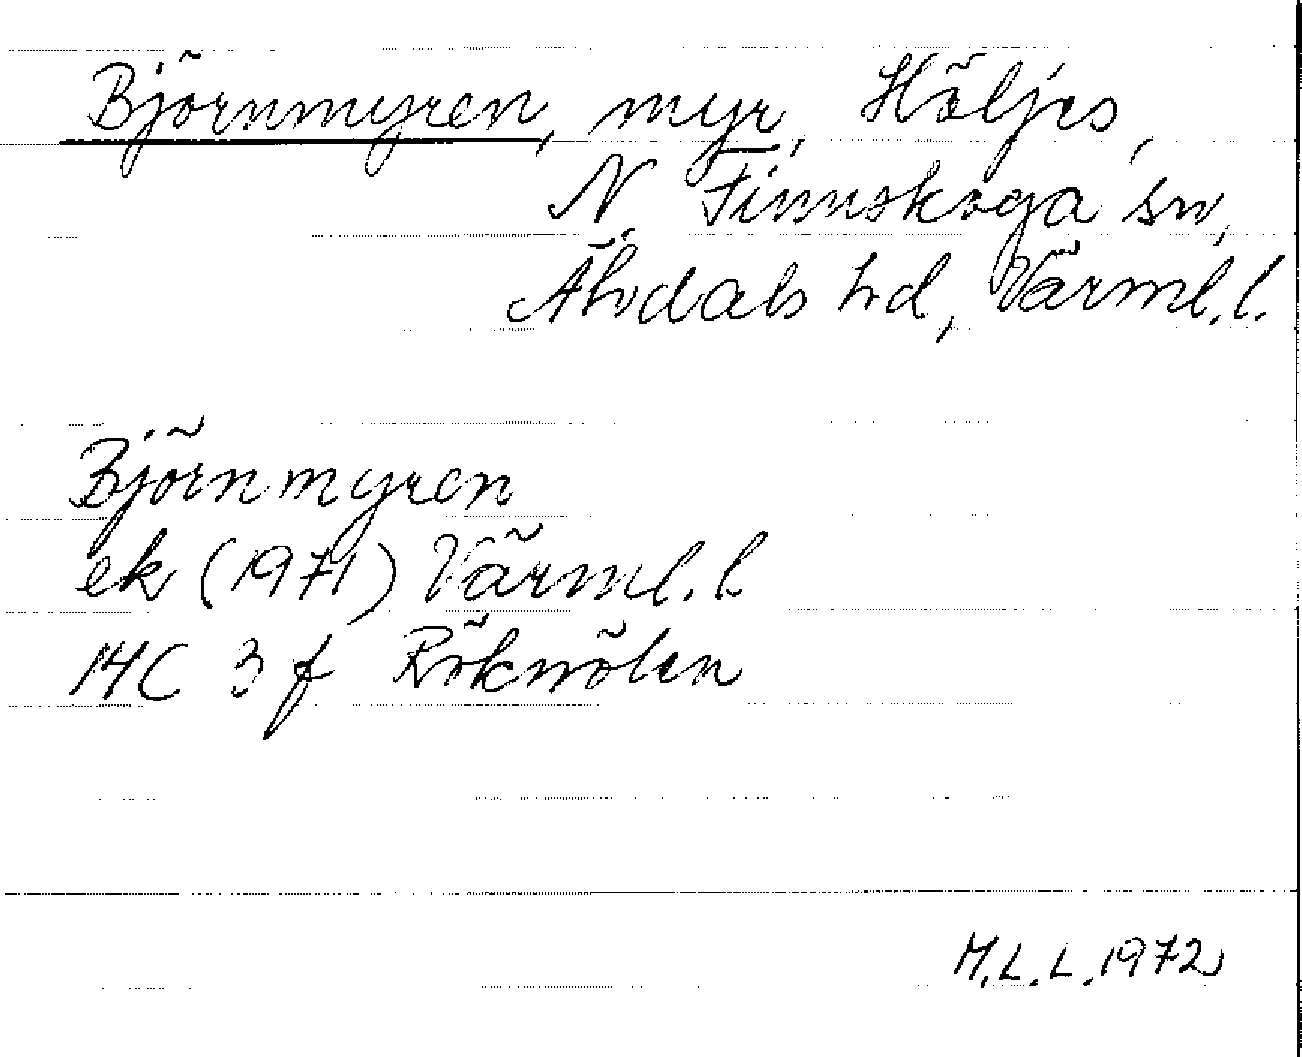 Björnmyren, myr, Höljes,
N. Finnskoga sn,
Älvdals hd, Värml. l.
Björnmyren
ek (1971) Värml. l.
14C 3 f Röknölen
M.L.L. 1972